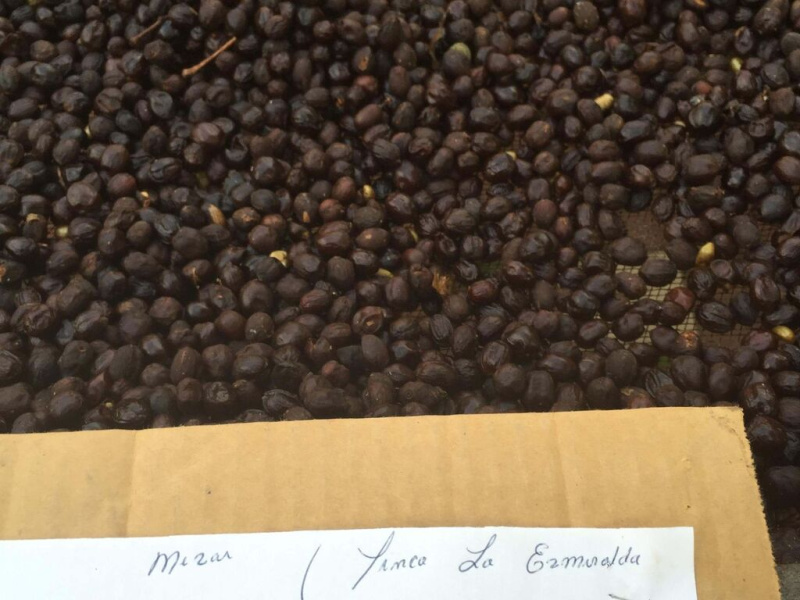 Mezar ( Finca La Ezmeralda